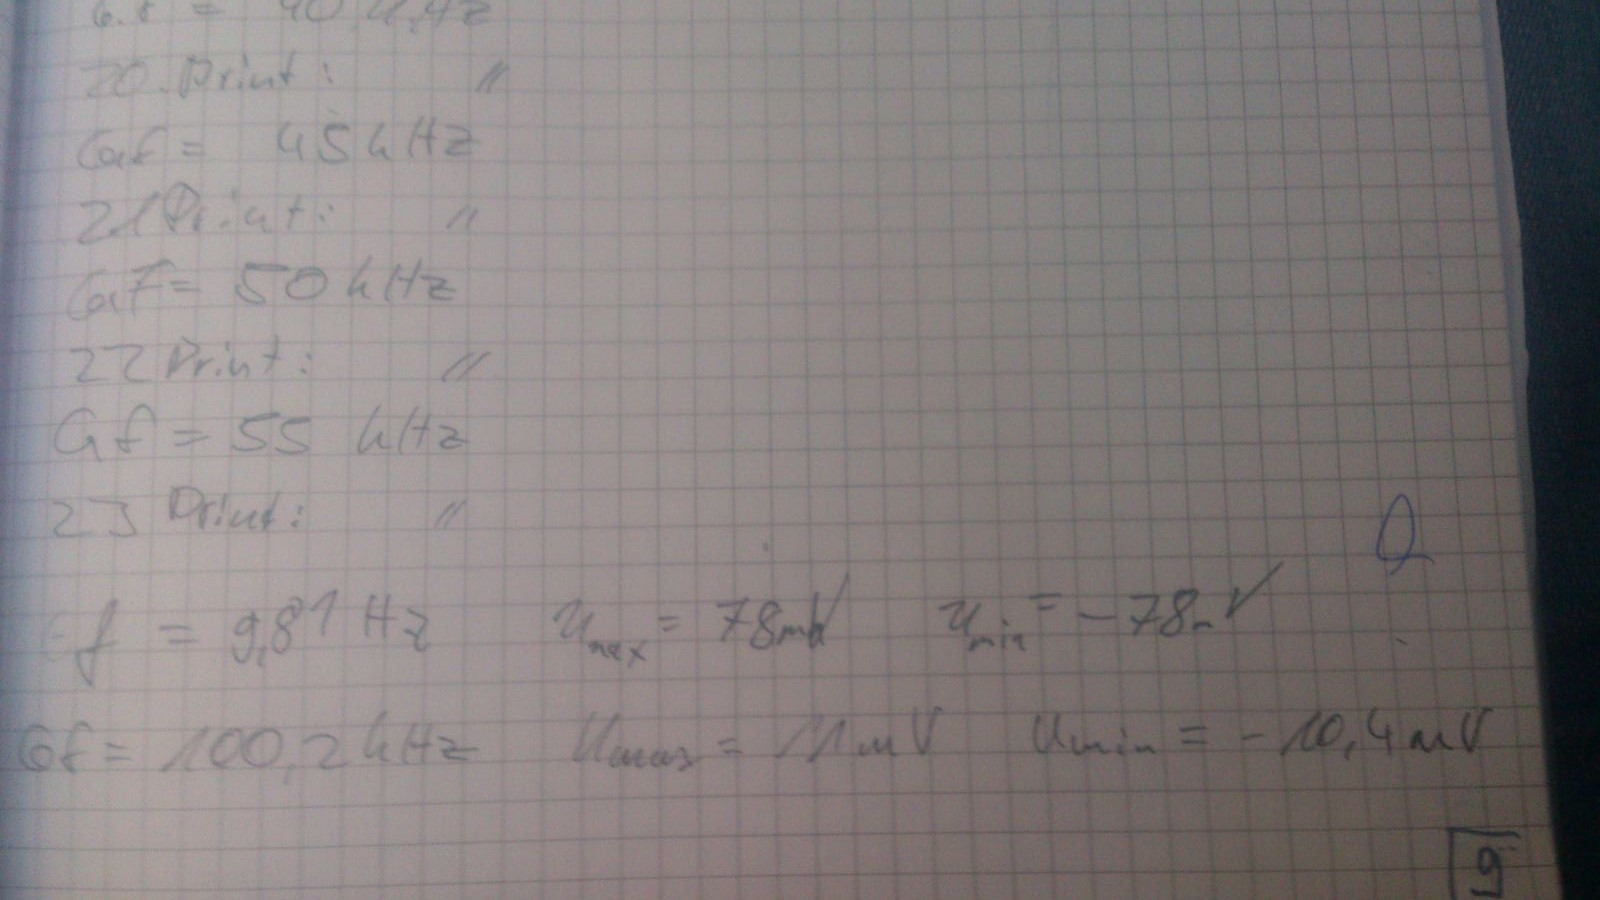 20. Print: "
Gf = 45 kHz
21 Print: "
f = 50 kHz
22 Print: "
Gf = 55 kHz
23 Print: "
f = 9,81 Hz Umax = 78mV Umin = -78mV
Gf = 100,2 kHz Umax = 11mV Umin = -10,4 mV
9